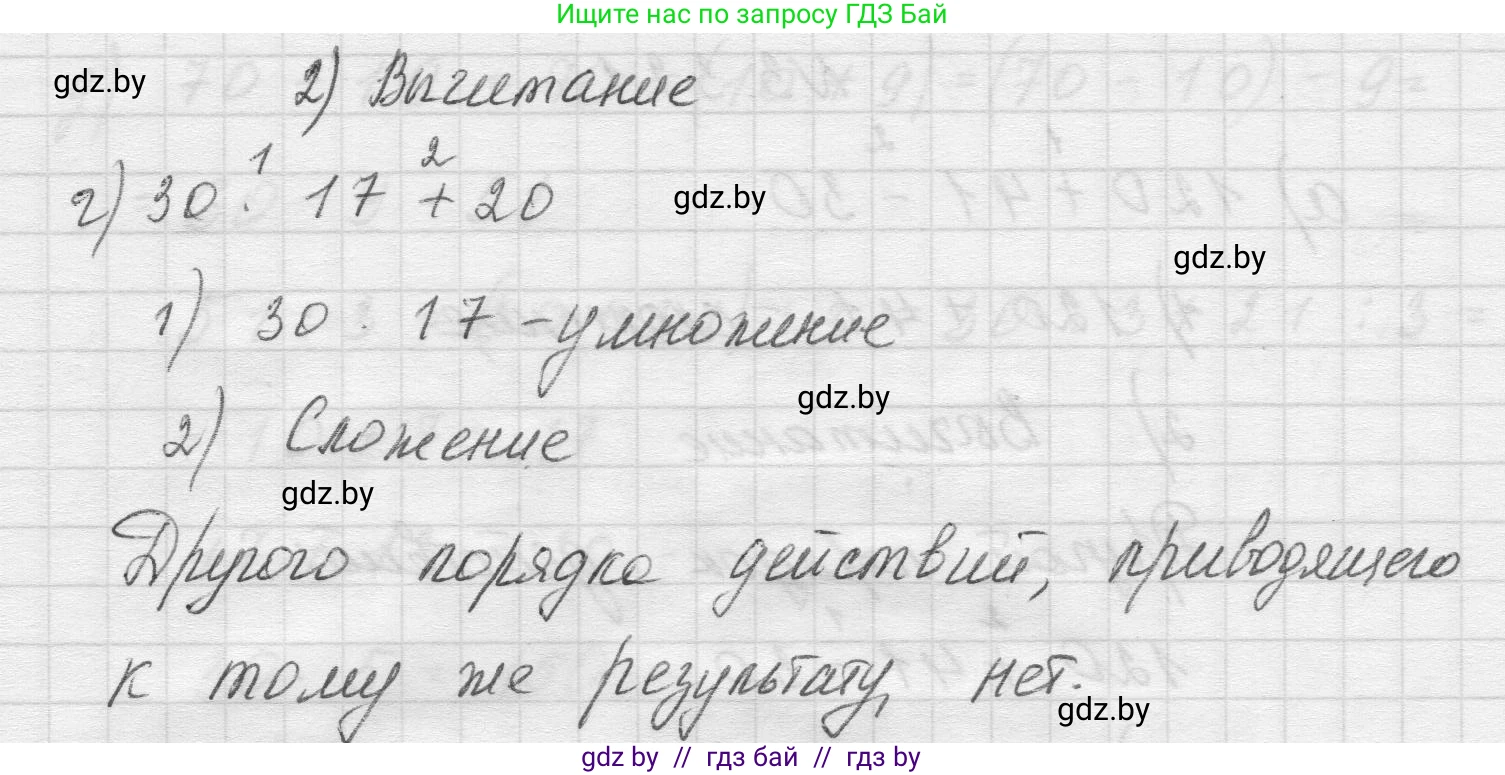 Ищите нас по запросу ГДЗ Бай
gdz.by 2) Вычитание
1 2
г) 30 · 17 + 20 gdz.by
gdz.by
1) 30 · 17 - умножение
gdz.by
2) Сложение
gdz.by
Другого порядка действий, приводящего
к тому же результату, нет.
gdz.by
gdz.by // гдз бай // гдз by